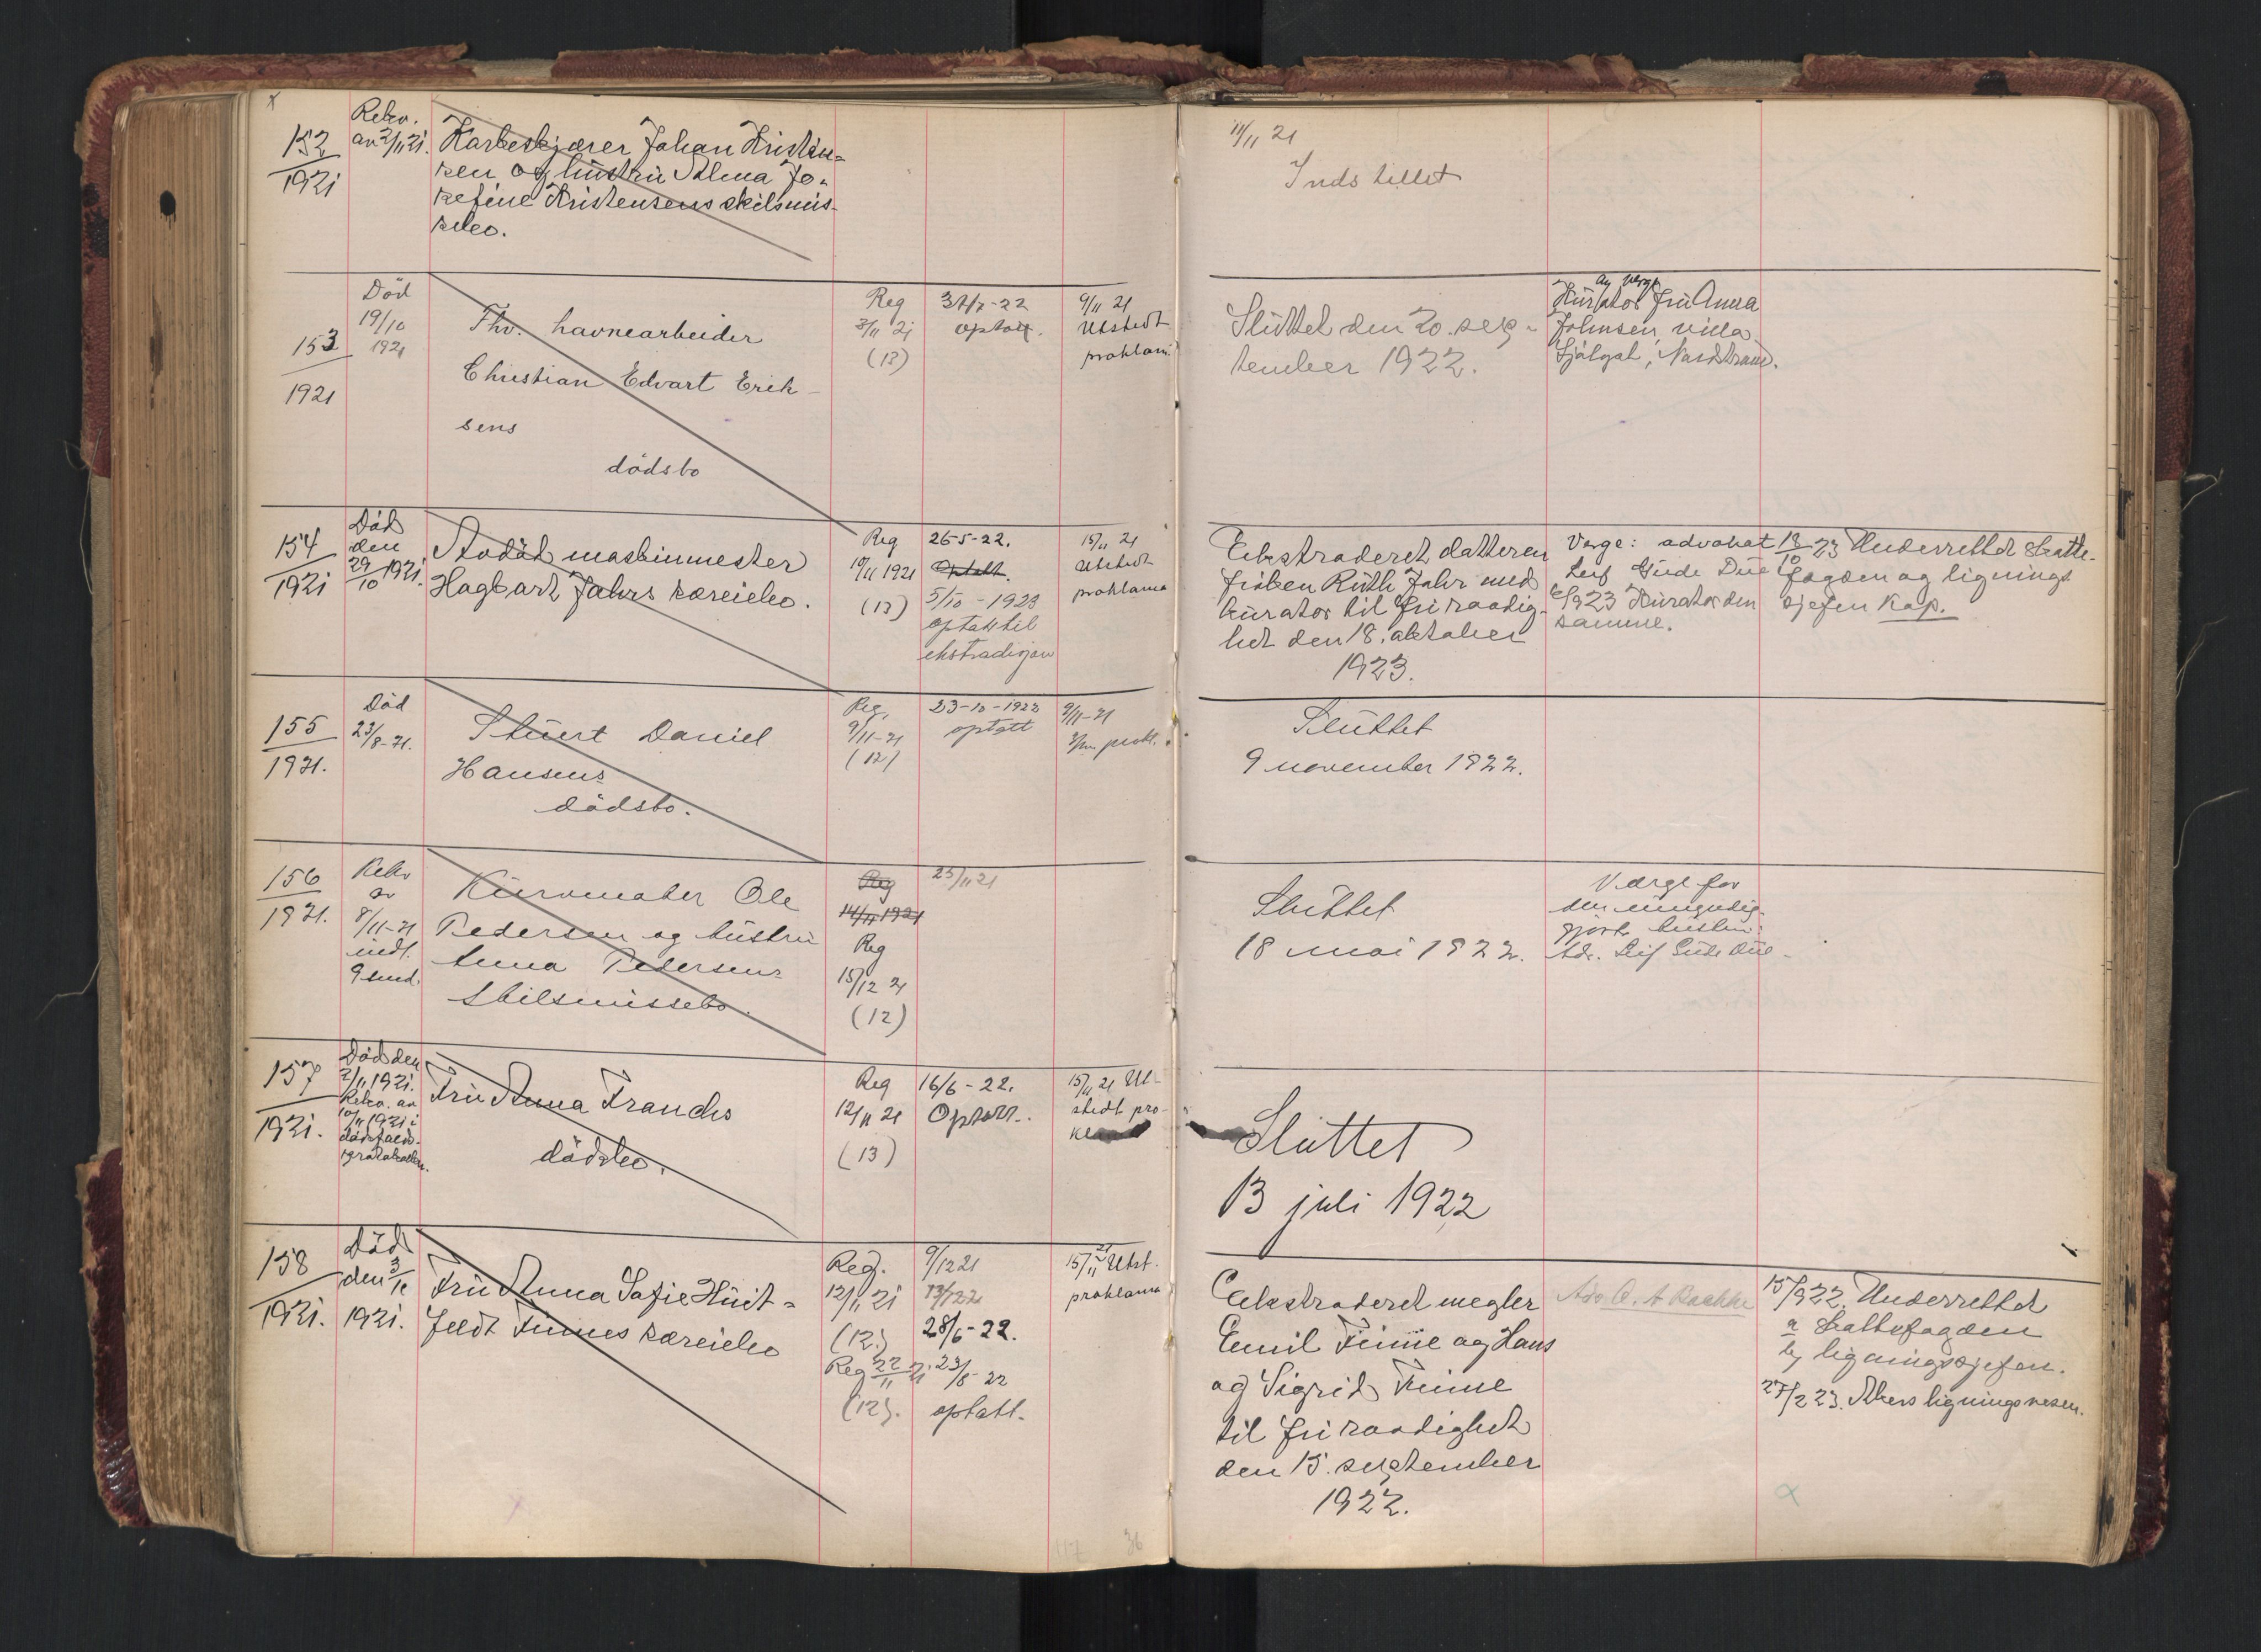 x
152
1921
Rekv.
av 2/11 21.
Korkeskjærer Johan Kristen-
sen og hustru Alma Jo-
sefine Kristensens skilsmis-
sebo.
11/11 21
Indstillet
153
1921
Död
19/10
1921
Fhv. havnearbeider
Christian Edvart Erik-
sens
dödsbo
Reg
3/11 21
(13)
31/7-22
optatt.
9/11 21
Utstedt
proklam.
Sluttet den 20. sep-
tember 1922.
Kurator fru Anna
Johnsen, villa
Nordstrand.
154
1921
Död
den
29/10 1921.
Avdöd maskinmester
Hagbart Jahrs særeiebo.
Reg
10/11 1921
(13)
26-5-22.
Optatt.
5/10-1923
optatt til
ekstradisjon
15/11 21
Utstedt
proklama
Ekstraderet datteren
fröken Ruth Jahr med
kurator til fri raadig-
het den 18. oktober
1923.
Verge: advokat
Leif Gude Due
6/9 23 Kurator den
samme.
18/10 23 Underrettet skatte-
fogden og lignings
sjefen Kap.
155
1921.
Död
23/8-21.
Stuert Daniel
Hansens
dödsbo.
Reg.
9/11-21
(12)
23-10-1922
optatt
9/11-21
prokl.
Sluttet
9 november 1922.
156
1921.
Rekv
av
8/11-21
indt.
9 smd.
Kurvmaker Ole
Pedersen og hustru
Anna Pedersens
Skilsmissebo.
Reg
14/11 1921
Reg
15/12 21
(12)
25/11 21
Sluttet
18 mai 1922.
Værge for
den umyndig-
gjorte hustru:
Adv. Leif Gude Due.
157
1921.
Död den
2/11 1921.
Rekv. av
10/11 1921 i
dödsfalds-
protokollen.
Fru Anna Francks
dödsbo.
Reg
12/11 21
(13)
16/6-22.
Optatt.
15/11 21 Ut-
stedt pro-
Sluttet
13 juli 1922
158
1921.
Död
den 3/10
1921.
Fru Anna Sofie Huit-
feldt Finnes særeiebo
Reg.
12/11 21
(12.)
Reg 22/11 21.
(12).
9/12 21
13/1 22
28/6-22.
23/8-22
optatt.
15/11 21 Utst.
proklama
Eekstraderet megler
Emil Finne og Hans
og Sigrid Finne
til fri raadighet
den 15. september
1922.
Adv O. A Bachke
15/9 22. Underrettet
a skattefogden
b) ligningssjefen.
27/2 23. Akers ligningsvesen.
x
117
36